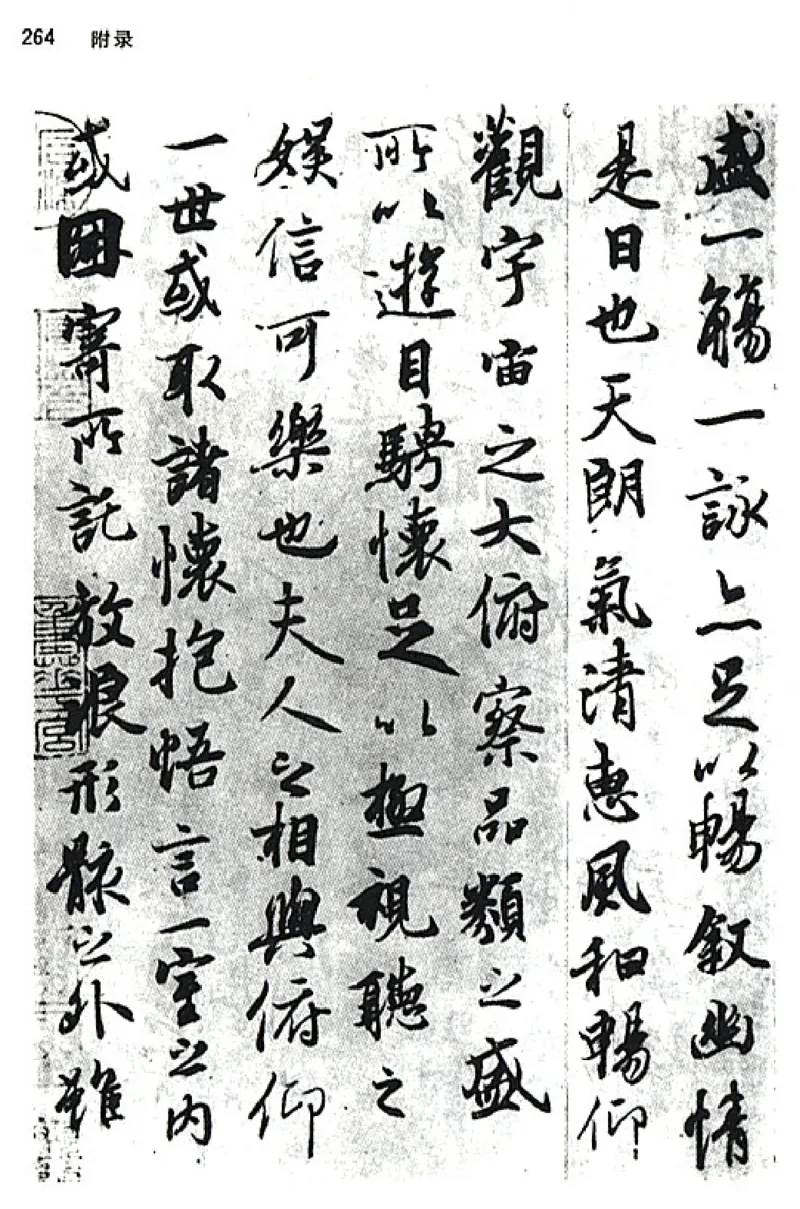 264 附录
盛一觴一詠亦足以暢敘幽情
是日也天朗氣清惠風和暢仰
觀宇宙之大俯察品類之盛
所以遊目騁懷足以極視聽之
娛信可樂也夫人之相與俯仰
一世或取諸懷抱悟言一室之內
或因寄所託放浪形骸之外雖